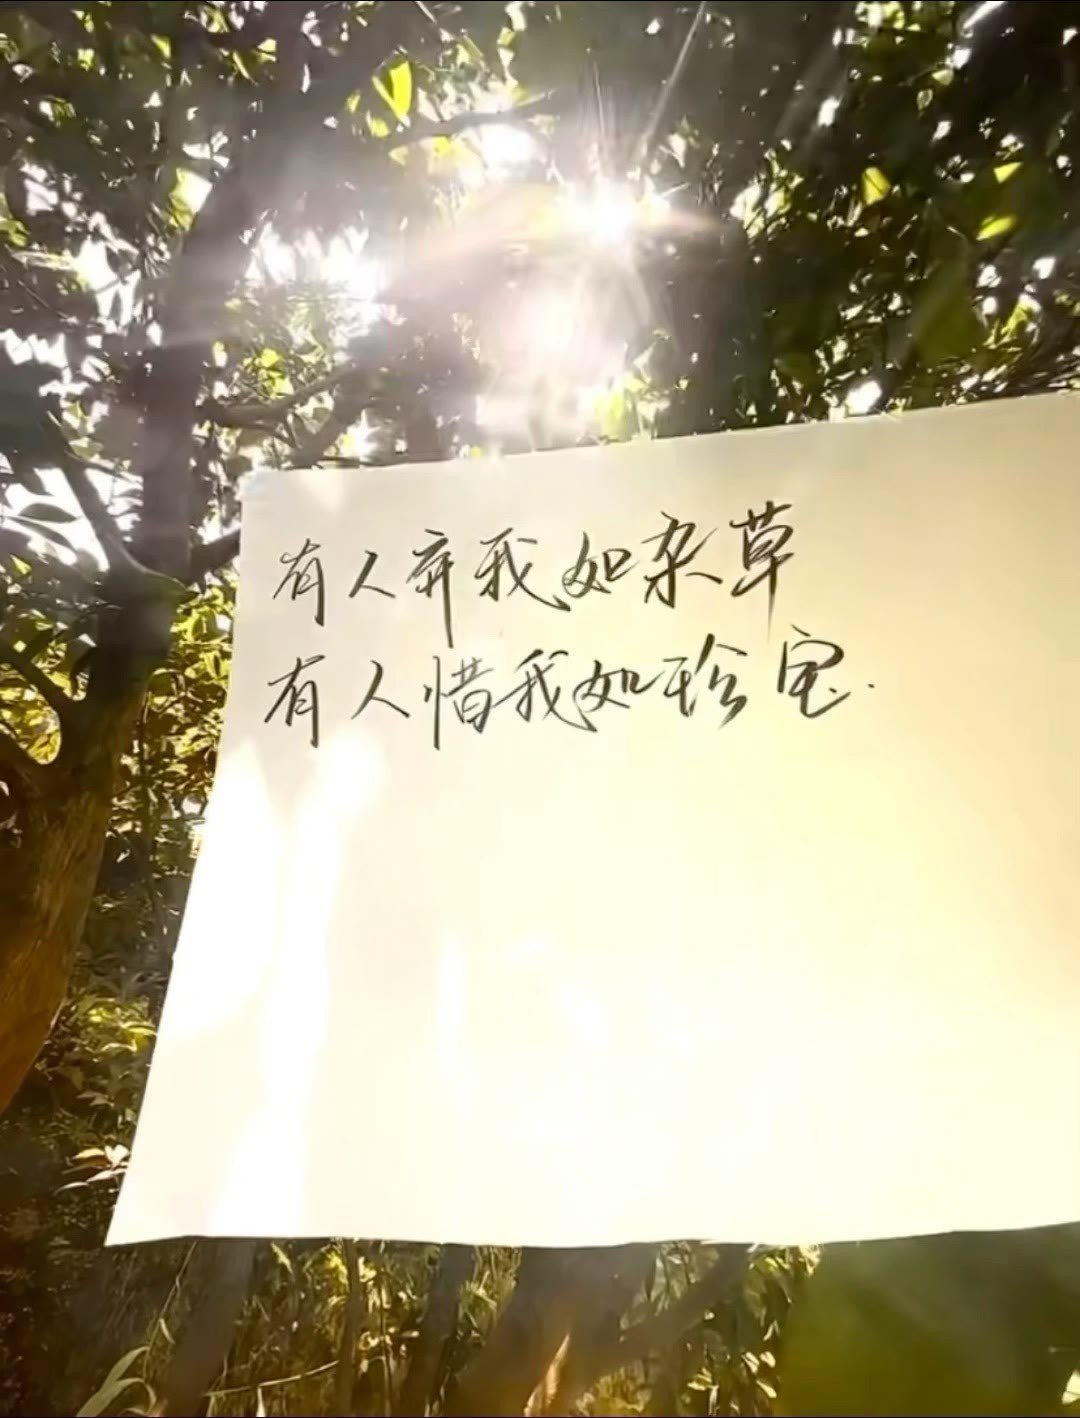 有人弃我如杂草
有人惜我如珍宝.